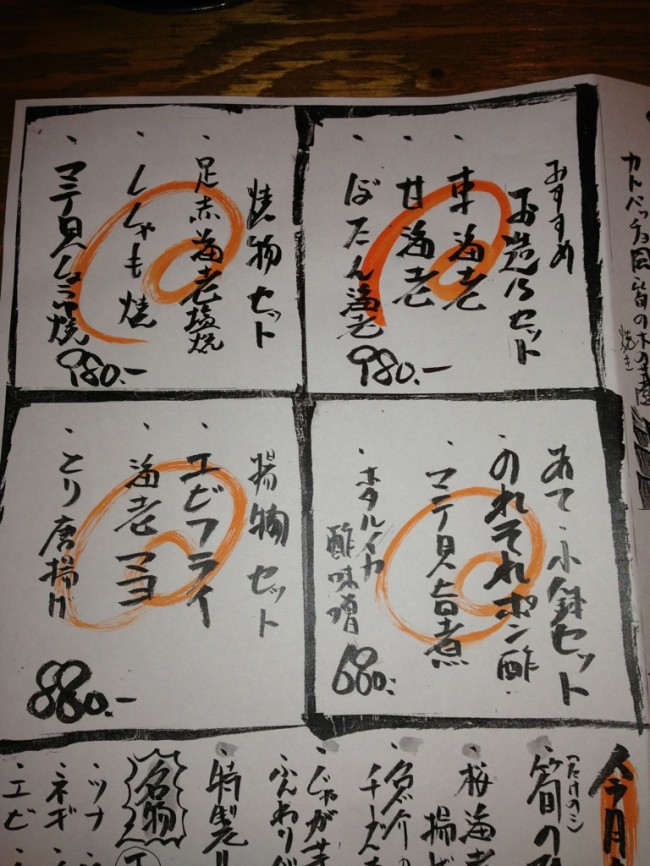 おすすめ
お造りセット
・車海老
・甘海老
・ぼたん海老
980.-
焼物セット
・足赤海老塩焼
・ししゃも焼
・マテ貝しょうゆ焼
980.-
あて・小鉢セット
・のれそれポン酢
・マテ貝旨煮
・ホタルイカ
酢味噌
680.-
揚物セット
・エビフライ
・海老マヨ
・とり唐揚げ
880.-
今月
(たけのこ)
・筍の
・桜海老
揚げ
・魚介の
チーズ
・じゃが芋
ふんわり
・特製
名物
・ツナ
・ネギ
・エビ
焼き